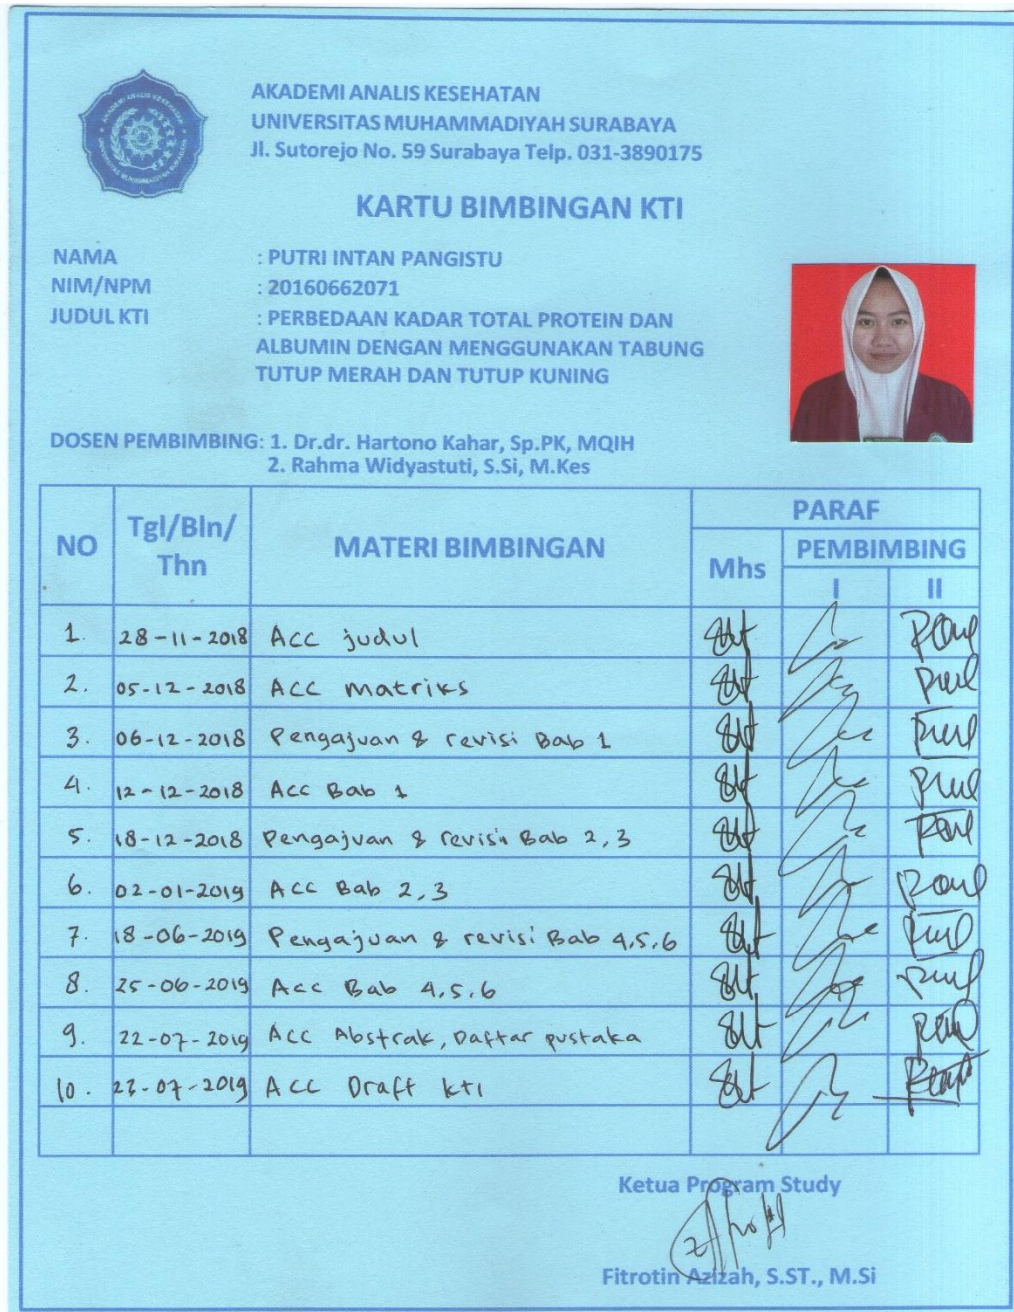 AKADEMI ANALIS KESEHATAN
UNIVERSITAS MUHAMMADIYAH SURABAYA
Jl. Sutorejo No. 59 Surabaya Telp. 031-3890175
KARTU BIMBINGAN KTI
NAMA : PUTRI INTAN PANGISTU
NIM/NPM : 20160662071
JUDUL KTI : PERBEDAAN KADAR TOTAL PROTEIN DAN
ALBUMIN DENGAN MENGGUNAKAN TABUNG
TUTUP MERAH DAN TUTUP KUNING
DOSEN PEMBIMBING: 1. Dr.dr. Hartono Kahar, Sp.PK, MQIH
2. Rahma Widyastuti, S.Si, M.Kes
NO Tgl/Bln/Thn MATERI BIMBINGAN PARAF
Mhs PEMBIMBING
I II
1. 28-11-2018 Acc judul
2. 05-12-2018 Acc matriks
3. 06-12-2018 Pengajuan & revisi Bab 1
4. 12-12-2018 Acc Bab 1
5. 18-12-2018 Pengajuan & revisi Bab 2,3
6. 02-01-2019 Acc Bab 2,3
7. 18-06-2019 Pengajuan & revisi Bab 4,5,6
8. 25-06-2019 Acc Bab 4,5,6
9. 22-07-2019 Acc Abstrak, Daftar pustaka
10. 23-07-2019 Acc Draft kti
Ketua Program Study
Fitrotin Azizah, S.ST., M.Si